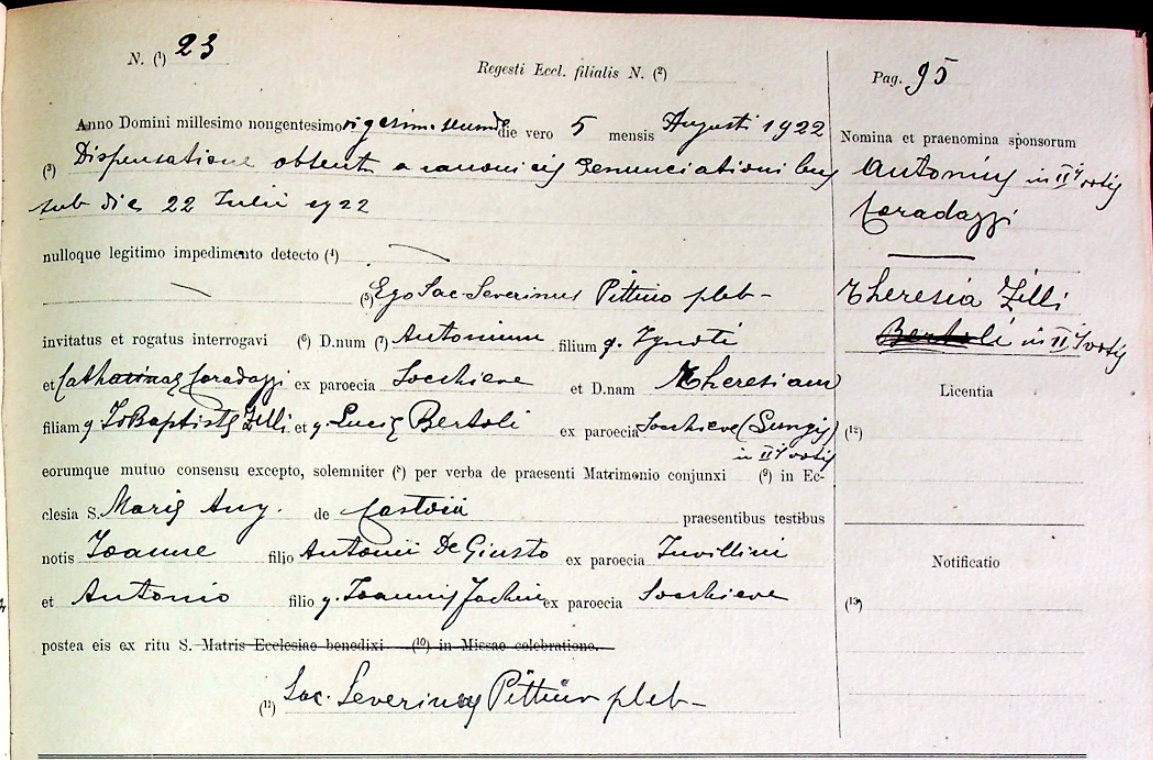 N. (¹) 23
Regesti Eccl. filialis N. (²)
Pag. 95
Anno Domini millesimo nongentesimo vigesimo secundo die vero 5 mensis Augusti 1922
(³) Dispensatione obtenta a canonicis denunciationibus
sub die 22 Julii 1922
nulloque legitimo impedimento detecto (⁴)
(⁵) Ego Sac. Severinus Pittino pleb-
invitatus et rogatus interrogavi (⁶) D.num (⁷) Antonium filium q. Ignoti
et Catharinae Coradazzi ex paroecia Socchieve et D.nam Theresiam
filiam q. Jo Baptistae Zilli et q. Luciae Bertoli ex paroecia Socchieve (Lungis)
in IIis votis
eorumque mutuo consensu excepto, solemniter (⁸) per verba de praesenti Matrimonio conjunxi (⁹) in Ec-
clesia S. Mariae Ang. de Castoia praesentibus testibus
notis Joanne filio Antonii De Giusto ex paroecia Invillini
et Antonio filio q. Joannis ex paroecia Socchieve
postea eis ex ritu S. Matris Ecclesiae benedixi (¹⁰) in Missae celebratione.
(¹¹) Sac. Severinus Pittino pleb-
Nomina et praenomina sponsorum
Antonius in IIis votis
Coradazzi
Theresia Zilli
Bertoli in IIis votis
Licentia
(¹²)
Notificatio
(¹³)